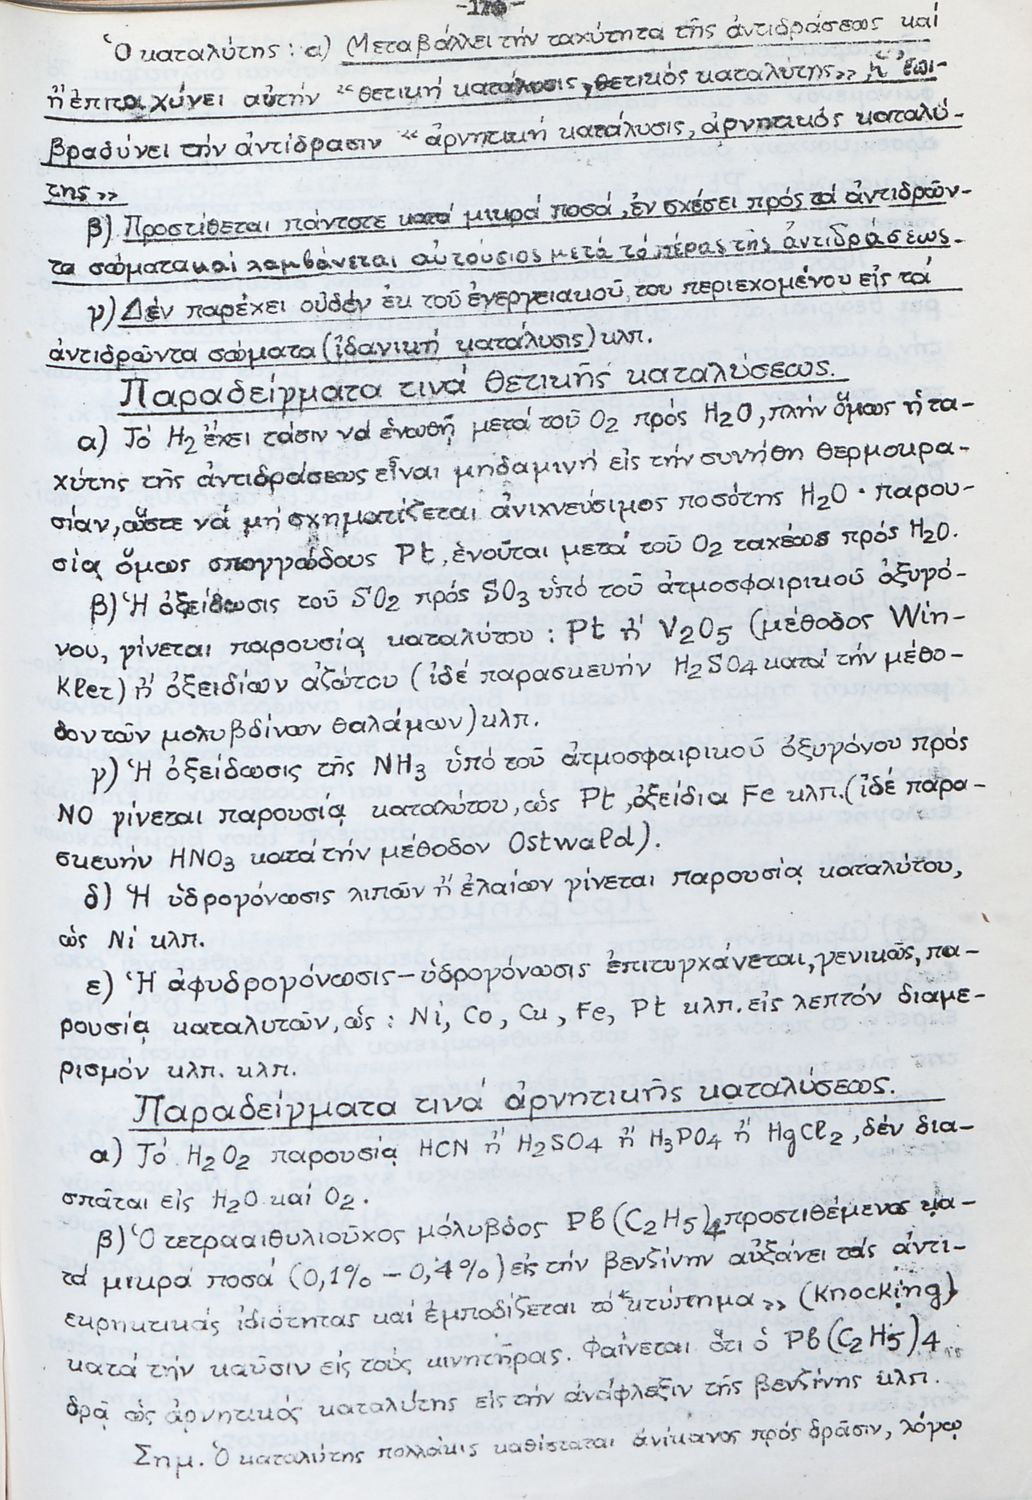 Ὁ καταλύτης: α) Μεταβάλλει τήν ταχύτητα τῆς ἀντιδράσεως καί
ἤ ἐπιταχύνει αὐτήν "θετική κατάλυσις, θετικός καταλύτης" ἤ ἐπι-
βραδύνει τήν ἀντίδρασιν "ἀρνητική κατάλυσις, ἀρνητικός καταλύ-
της"
β) Προστίθεται πάντοτε κατά μικρά ποσά, ἐν σχέσει πρός τά ἀντιδρῶν-
τα σώματα καί λαμβάνεται αὐτούσιος μετά τό πέρας τῆς ἀντιδράσεως.
γ) Δέν παρέχει οὐδέν ἐκ τοῦ ἐνεργειακοῦ του περιεχομένου εἰς τά
ἀντιδρῶντα σώματα (ἰδανική κατάλυσις) κλπ.
Παραδείγματα τινά θετικῆς καταλύσεως.
α) Τό H2 ἔχει τάσιν νά ἑνωθῆ μετά τοῦ O2 πρός H2O, πλήν ὅμως ἡ τα-
χύτης τῆς ἀντιδράσεως εἶναι μηδαμινή εἰς τήν συνήθη θερμοκρα-
σίαν, ὥστε νά μή σχηματίζεται ἀνιχνεύσιμος ποσότης H2O· παρου-
σίᾳ ὅμως σπογγώδους Pt, ἑνοῦται μετά τοῦ O2 ταχέως πρός H2O.
β) Ἡ ὀξείδωσις τοῦ SO2 πρός SO3 ὑπό τοῦ ἀτμοσφαιρικοῦ ὀξυγό-
νου, γίνεται παρουσίᾳ καταλύτου: Pt ἤ V2O5 (μέθοδος Win-
kler) ἤ ὀξειδίων ἀζώτου (ἰδέ παρασκευήν H2SO4 κατά τήν μέθο-
δον τῶν μολυβδίνων θαλάμων) κλπ.
γ) Ἡ ὀξείδωσις τῆς NH3 ὑπό τοῦ ἀτμοσφαιρικοῦ ὀξυγόνου πρός
NO γίνεται παρουσίᾳ καταλύτου, ὡς Pt, ὀξείδια Fe κλπ. (ἰδέ παρα-
σκευήν HNO3 κατά τήν μέθοδον Ostwald).
δ) Ἡ ὑδρογόνωσις λιπῶν ἤ ἐλαίων γίνεται παρουσίᾳ καταλύτου,
ὡς Ni κλπ.
ε) Ἡ ἀφυδρογόνωσις-ὑδρογόνωσις ἐπιτυγχάνεται, γενικῶς, πα-
ρουσίᾳ καταλυτῶν, ὡς: Ni, Co, Cu, Fe, Pt κλπ. εἰς λεπτόν διαμε-
ρισμόν κλπ. κλπ.
Παραδείγματα τινά ἀρνητικῆς καταλύσεως.
α) Τό H2O2 παρουσίᾳ HCN ἤ H2SO4 ἤ H3PO4 ἤ HgCl2, δέν δια-
σπᾶται εἰς H2O καί O2.
β) Ὁ τετρααιθυλιοῦχος μόλυβδος Pb(C2H5)4 προστιθέμενος κα-
τά μικρά ποσά (0,1% - 0,4%) εἰς τήν βενζίνην αὐξάνει τάς ἀντι-
εκρηκτικάς ἰδιότητας καί ἐμποδίζεται τό "κτύπημα" (Knocking)
κατά τήν καῦσιν εἰς τούς κινητῆρας. Φαίνεται ὅτι ὁ Pb(C2H5)4
δρᾷ ὡς ἀρνητικός καταλύτης εἰς τήν ἀνάφλεξιν τῆς βενζίνης κλπ.
Σημ. Ὁ καταλύτης πολλάκις καθίσταται ἀνίκανος πρός δρᾶσιν, λόγῳ